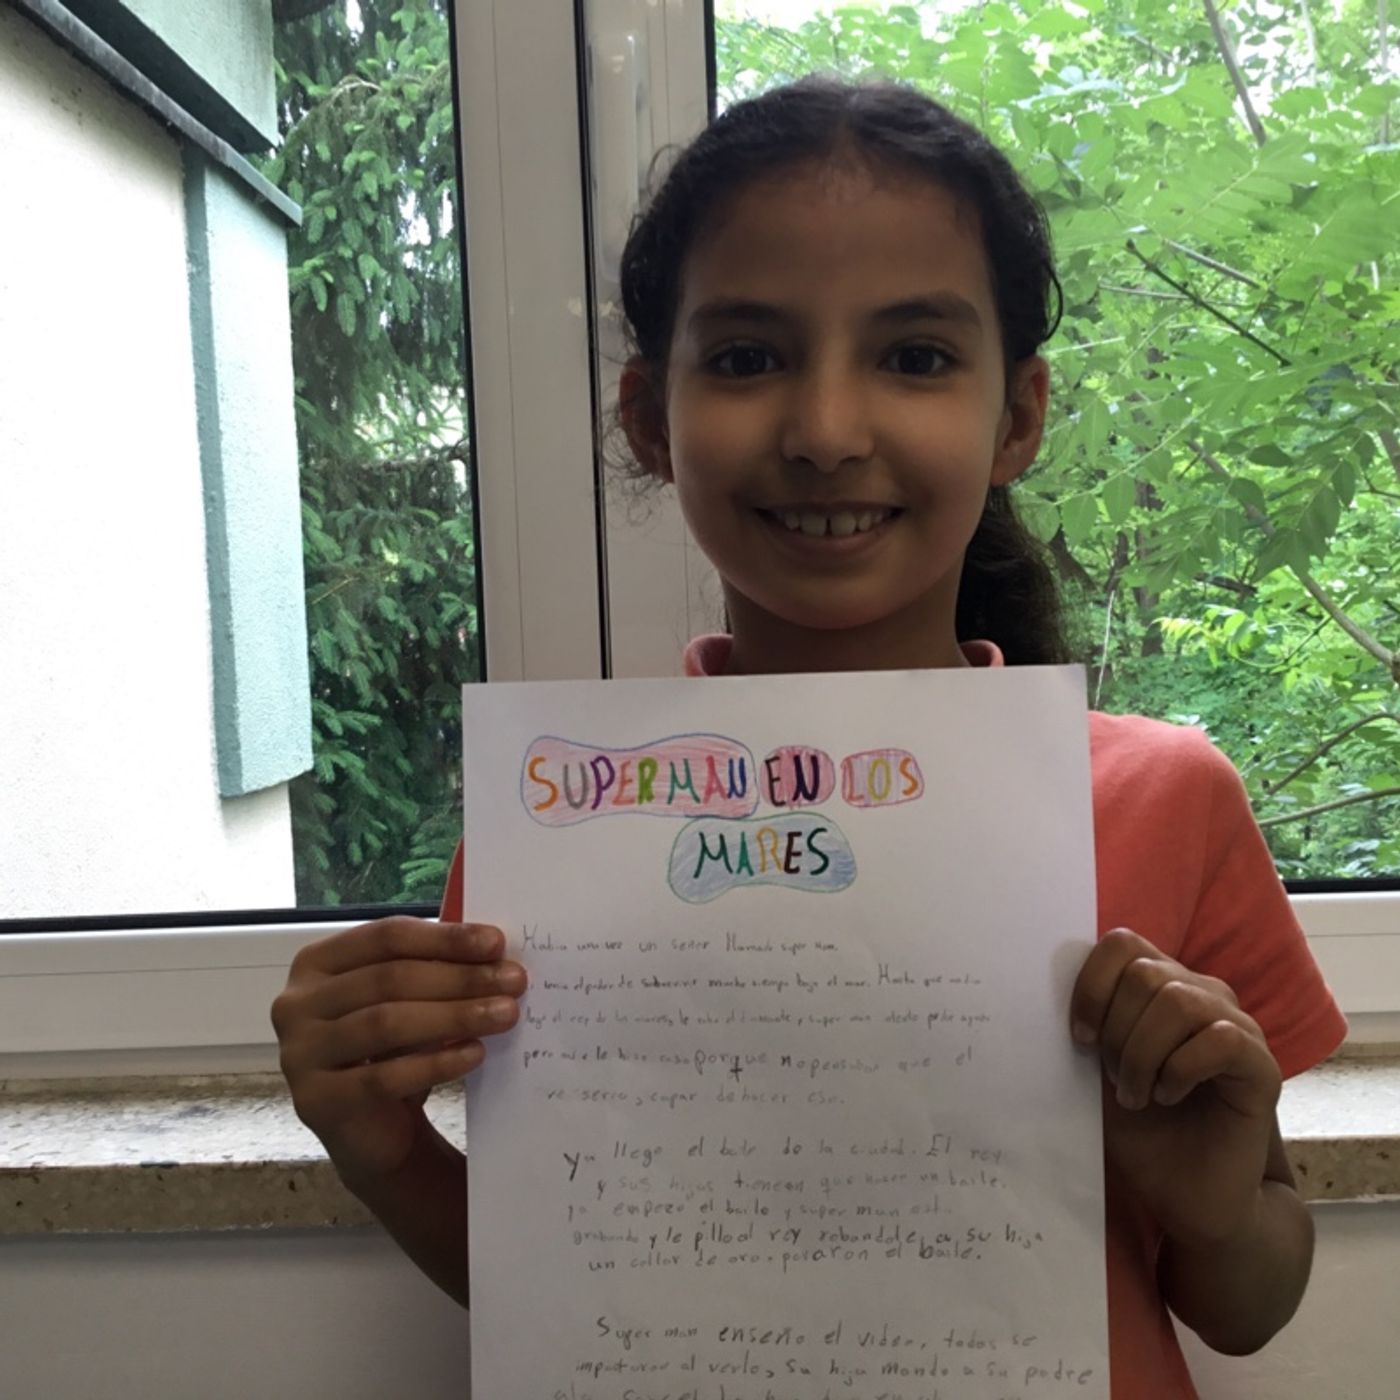 SUPERMAN EN LOS
MARES
Habia una vez un señor llamado super man.
tenia el poder de mucho tiempo bajo el mar. Hasta que un dia
llego el rey de los mares, le robo el y super man pedir ayuda
pero nadie le hizo caso porque no pensaban que el
rey seria, capaz de hacer eso.
Ya llego el baile de la ciudad. El rey
y sus hijas tienen que hacer un baile.
ya empezo el baile y super man
grabando y le pillo al rey robandole a su hija
un collar de oro. pararon el baile.
Super man enseño el video, todos se
al verlo, su hija mando a su padre